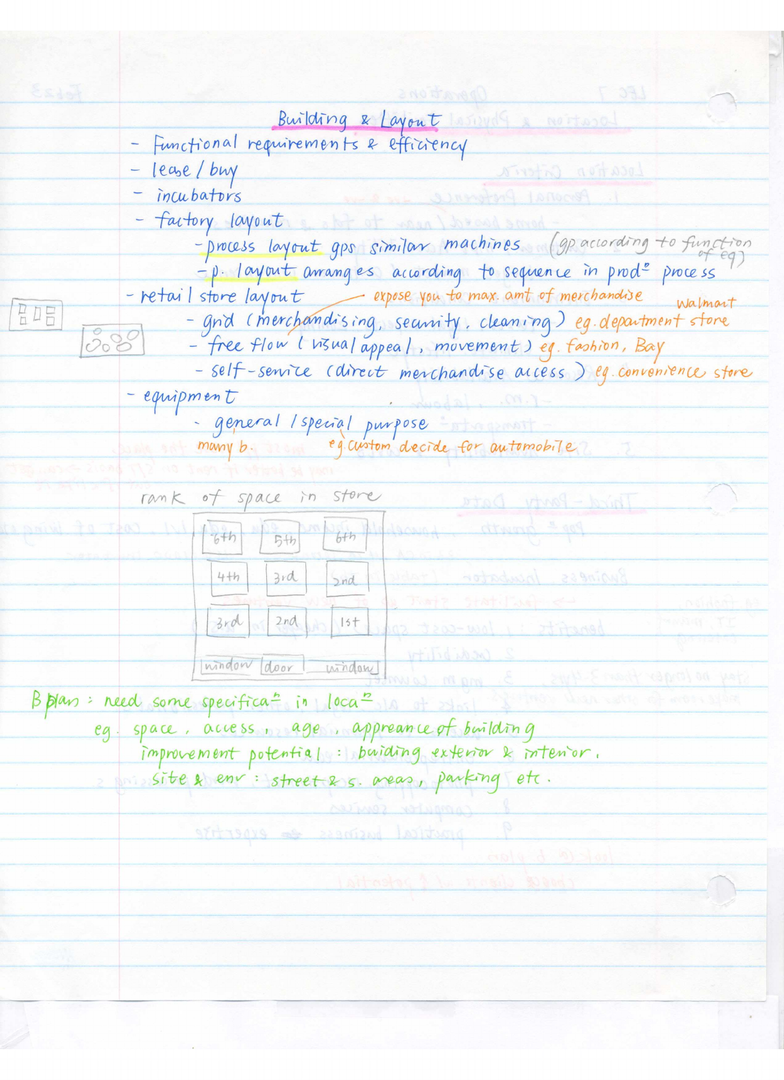 Building & Layout
- Functional requirements & efficiency
- lease / buy
- incubators
- factory layout
- process layout gps similar machines (gp according to function of eq)
- p. layout arranges according to sequence in prodⁿ process
- retail store layout expose you to max. amt of merchandise
- grid (merchandising, security, cleaning) eg. department store Walmart
- free flow (visual appeal, movement) eg. fashion, Bay
- self-service (direct merchandise access) eg. convenience store
- equipment
- general / special purpose
many b. eg custom decide for automobile
rank of space in store
6th 5th 6th
4th 3rd 2nd
3rd 2nd 1st
window door window
B plan : need some specificaⁿ in locaⁿ
eg. space, access, age, appreance of building
improvement potential : buiding exterior & interior,
site & env : street & s. areas, parking etc.